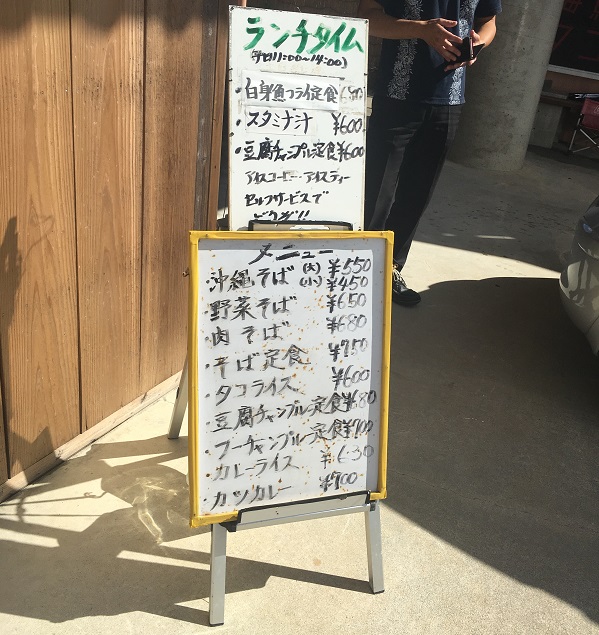 ランチタイム
(平日11:00~14:00)
・白身魚フライ定食 680
・スタミナ汁 ¥600
・豆腐チャンプル定食 ¥600
アイスコーヒー・アイスティー
セルフサービスで
どうぞ!!
メニュー
・沖縄そば (大) ¥550
(小) ¥450
・野菜そば ¥650
・肉そば ¥680
・そば定食 ¥750
・タコライス ¥600
・豆腐チャンプル定食 ¥680
・フーチャンプル定食 ¥700
・カレーライス ¥630
・カツカレー ¥700